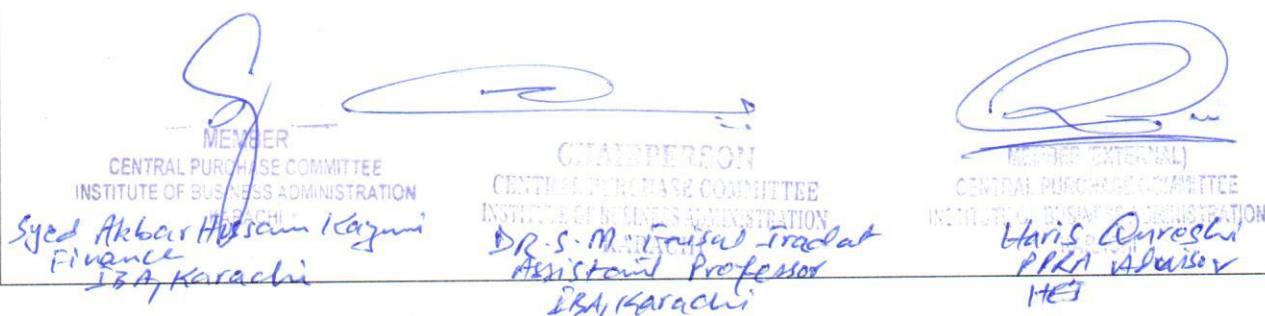 MEMBER
CENTRAL PURCHASE COMMITTEE
INSTITUTE OF BUSINESS ADMINISTRATION
KARACHI
Syed Akbar Hussain Kazmi
Finance
IBA, Karachi
CHAIRPERSON
CENTRAL PURCHASE COMMITTEE
INSTITUTE OF BUSINESS ADMINISTRATION
KARACHI
DR. S. M. Faisal Iradat
Assistant Professor
IBA, Karachi
MEMBER (EXTERNAL)
CENTRAL PURCHASE COMMITTEE
INSTITUTE OF BUSINESS ADMINISTRATION
Haris Qureshi
PPRA Advisor
HEJ